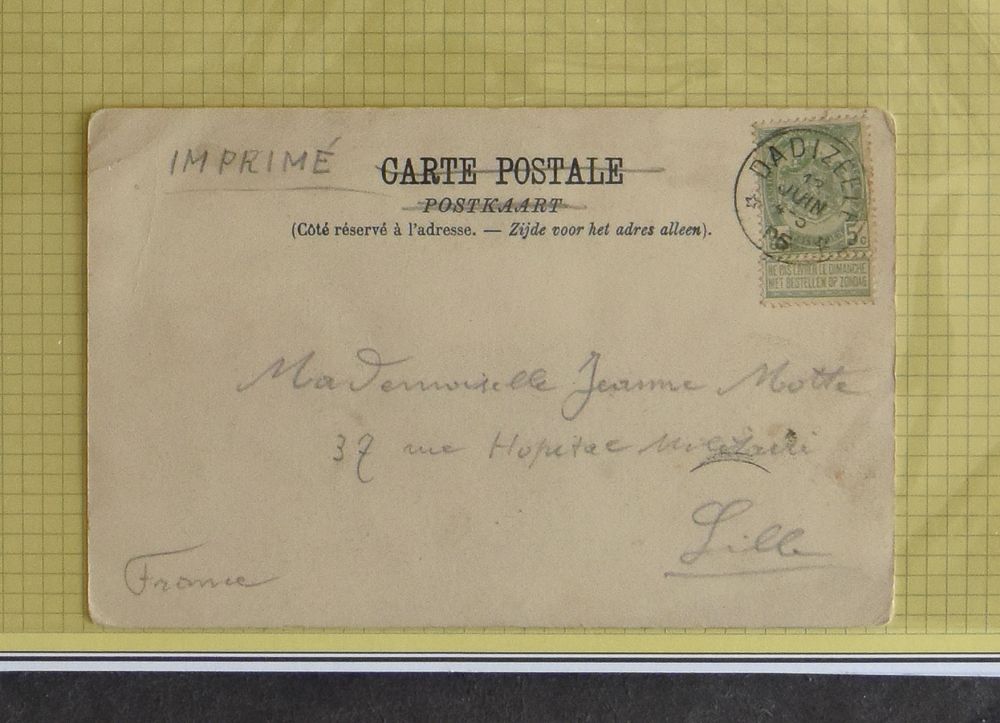 IMPRIMÉ
CARTE POSTALE
POSTKAART
(Côté réservé à l'adresse. — Zijde voor het adres alleen).
DADIZEELE
JUIN
4-5
06
5c
NE PAS LIVRER LE DIMANCHE
NIET BESTELLEN OP ZONDAG
Mademoiselle Jeanne Motte
37 rue Hopital Militaire
Lille
France